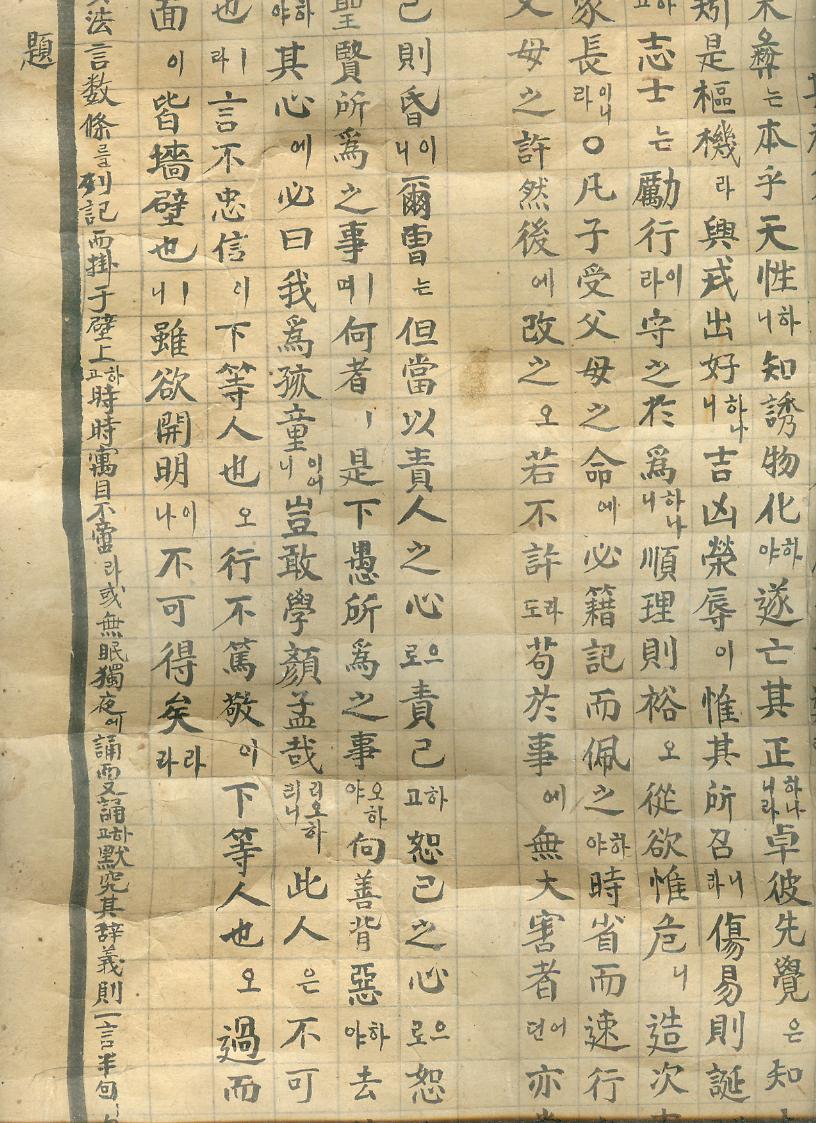 彛는本乎天性하니知誘物化하야遂亡其正하나니라卓彼先覺은知
是樞機라興戎出好하나니吉凶榮辱이惟其所召니라傷易則誕
고하志士는勵行이라守之於爲하나니順理則裕오從欲惟危니造次
家長이니라○凡子受父母之命에必籍記而佩之하야時省而速行
父母之許然後에改之오若不許라도苟於事에無大害者어던亦
己則昏이니爾曹는但當以責人之心으로責己하고恕己之心으로恕
聖賢所爲之事며ㅣ何者ㅣ是下愚所爲之事오하야向善背惡하야去
하야其心에必曰我爲孩童이어니豈敢學顔孟哉리오하리니此人은不可
也ㅣ라言不忠信이下等人也오行不篤敬이下等人也오過而
面이皆墻壁也ㅣ니雖欲開明이나不可得矣라라
法言数條를列記而掛于壁上하고時時寓目不啻라或無眠獨夜에誦而又誦하고默究其辞義則一言半句
題